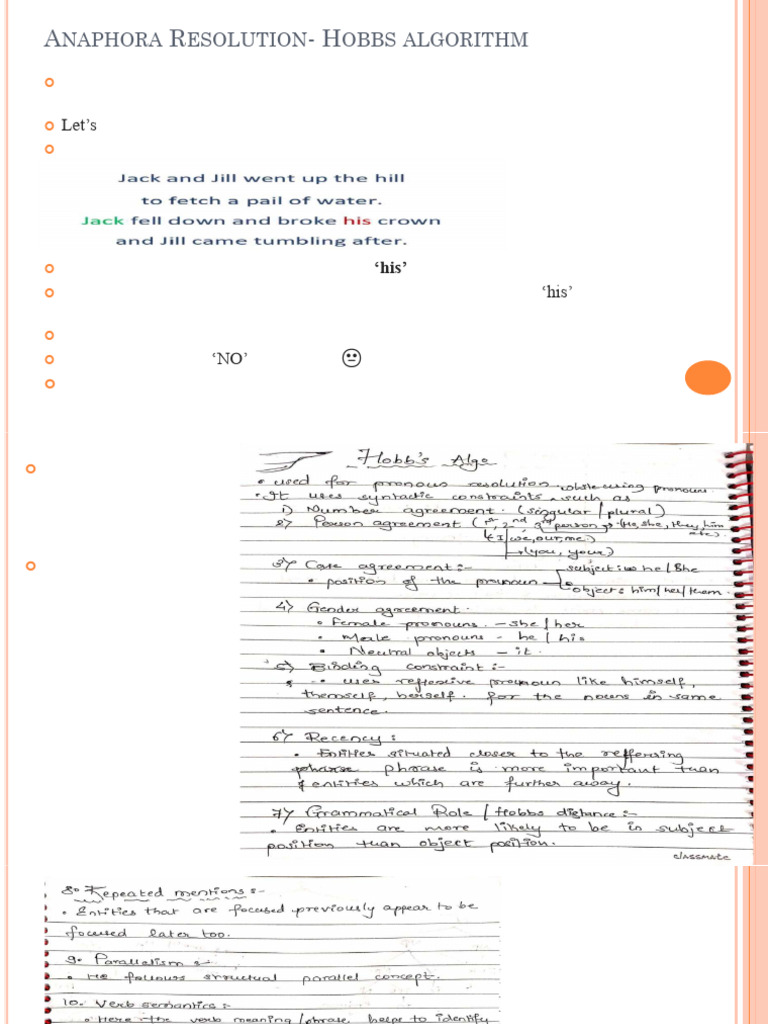 ANAPHORA RESOLUTION- HOBBS ALGORITHM
Let's
Jack and Jill went up the hill
to fetch a pail of water.
Jack fell down and broke his crown
and Jill came tumbling after.
'his'
'his'
'NO' 😐
Hobb's Algo
• used for pronoun resolution while using pronouns.
• It uses syntactic constraints such as
1) Number agreement (singular / plural)
2) Person agreement (1st, 2nd 3rd person → (He, she, they, him etc.)
(I, we, our, me)
→ (you, your)
3) Case agreement :-
subject: he / She
• position of the pronoun
object: him/her/them.
4) Gender agreement.
• Female pronouns. - she / her
• Male pronouns - he / his
• Neutral objects - it.
5) Binding constraint :-
• uses reflexive pronoun like himself,
themself, herself. for the nouns in same
sentence.
6) Recency :
• Entities situated closer to the reffering
phrase is more important than
entities which are further away.
7) Grammatical Role / Hobbs distance :-
• Entities are more likely to be in subject
position than object position.
classmate
8. Repeated mentions :-
• Entities that are focused previously appear to be
focused later too.
9. Parallelism :-
• He follows structual parallel concept.
10. Verb semantics :-
• Here the verb meaning /phrase helps to identify